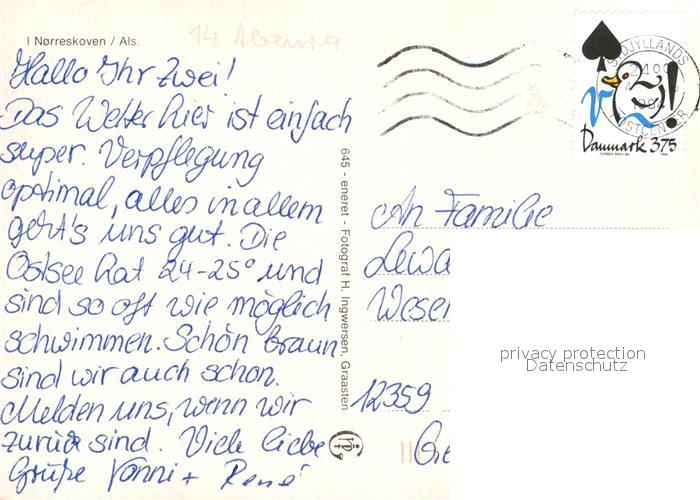 I Nørreskoven / Als.
14 Abenra
Hallo Ihr Zwei!
Das Wetter hier ist einfach
super. Verpflegung
optimal, alles in allem
geht's uns gut. Die
Ostsee hat 24-25° und
sind so oft wie möglich
schwimmen. Schön braun
sind wir auch schon.
Melden uns, wenn wir
zurück sind. Viele liebe
Grüße Vanni + René
645 - eneret - Fotograf H. Ingwersen, Graasten
SYDJYLLANDS
POSTCENTER
Danmark 375
An Familie
Lewa
Weser
12359
privacy protection
Datenschutz